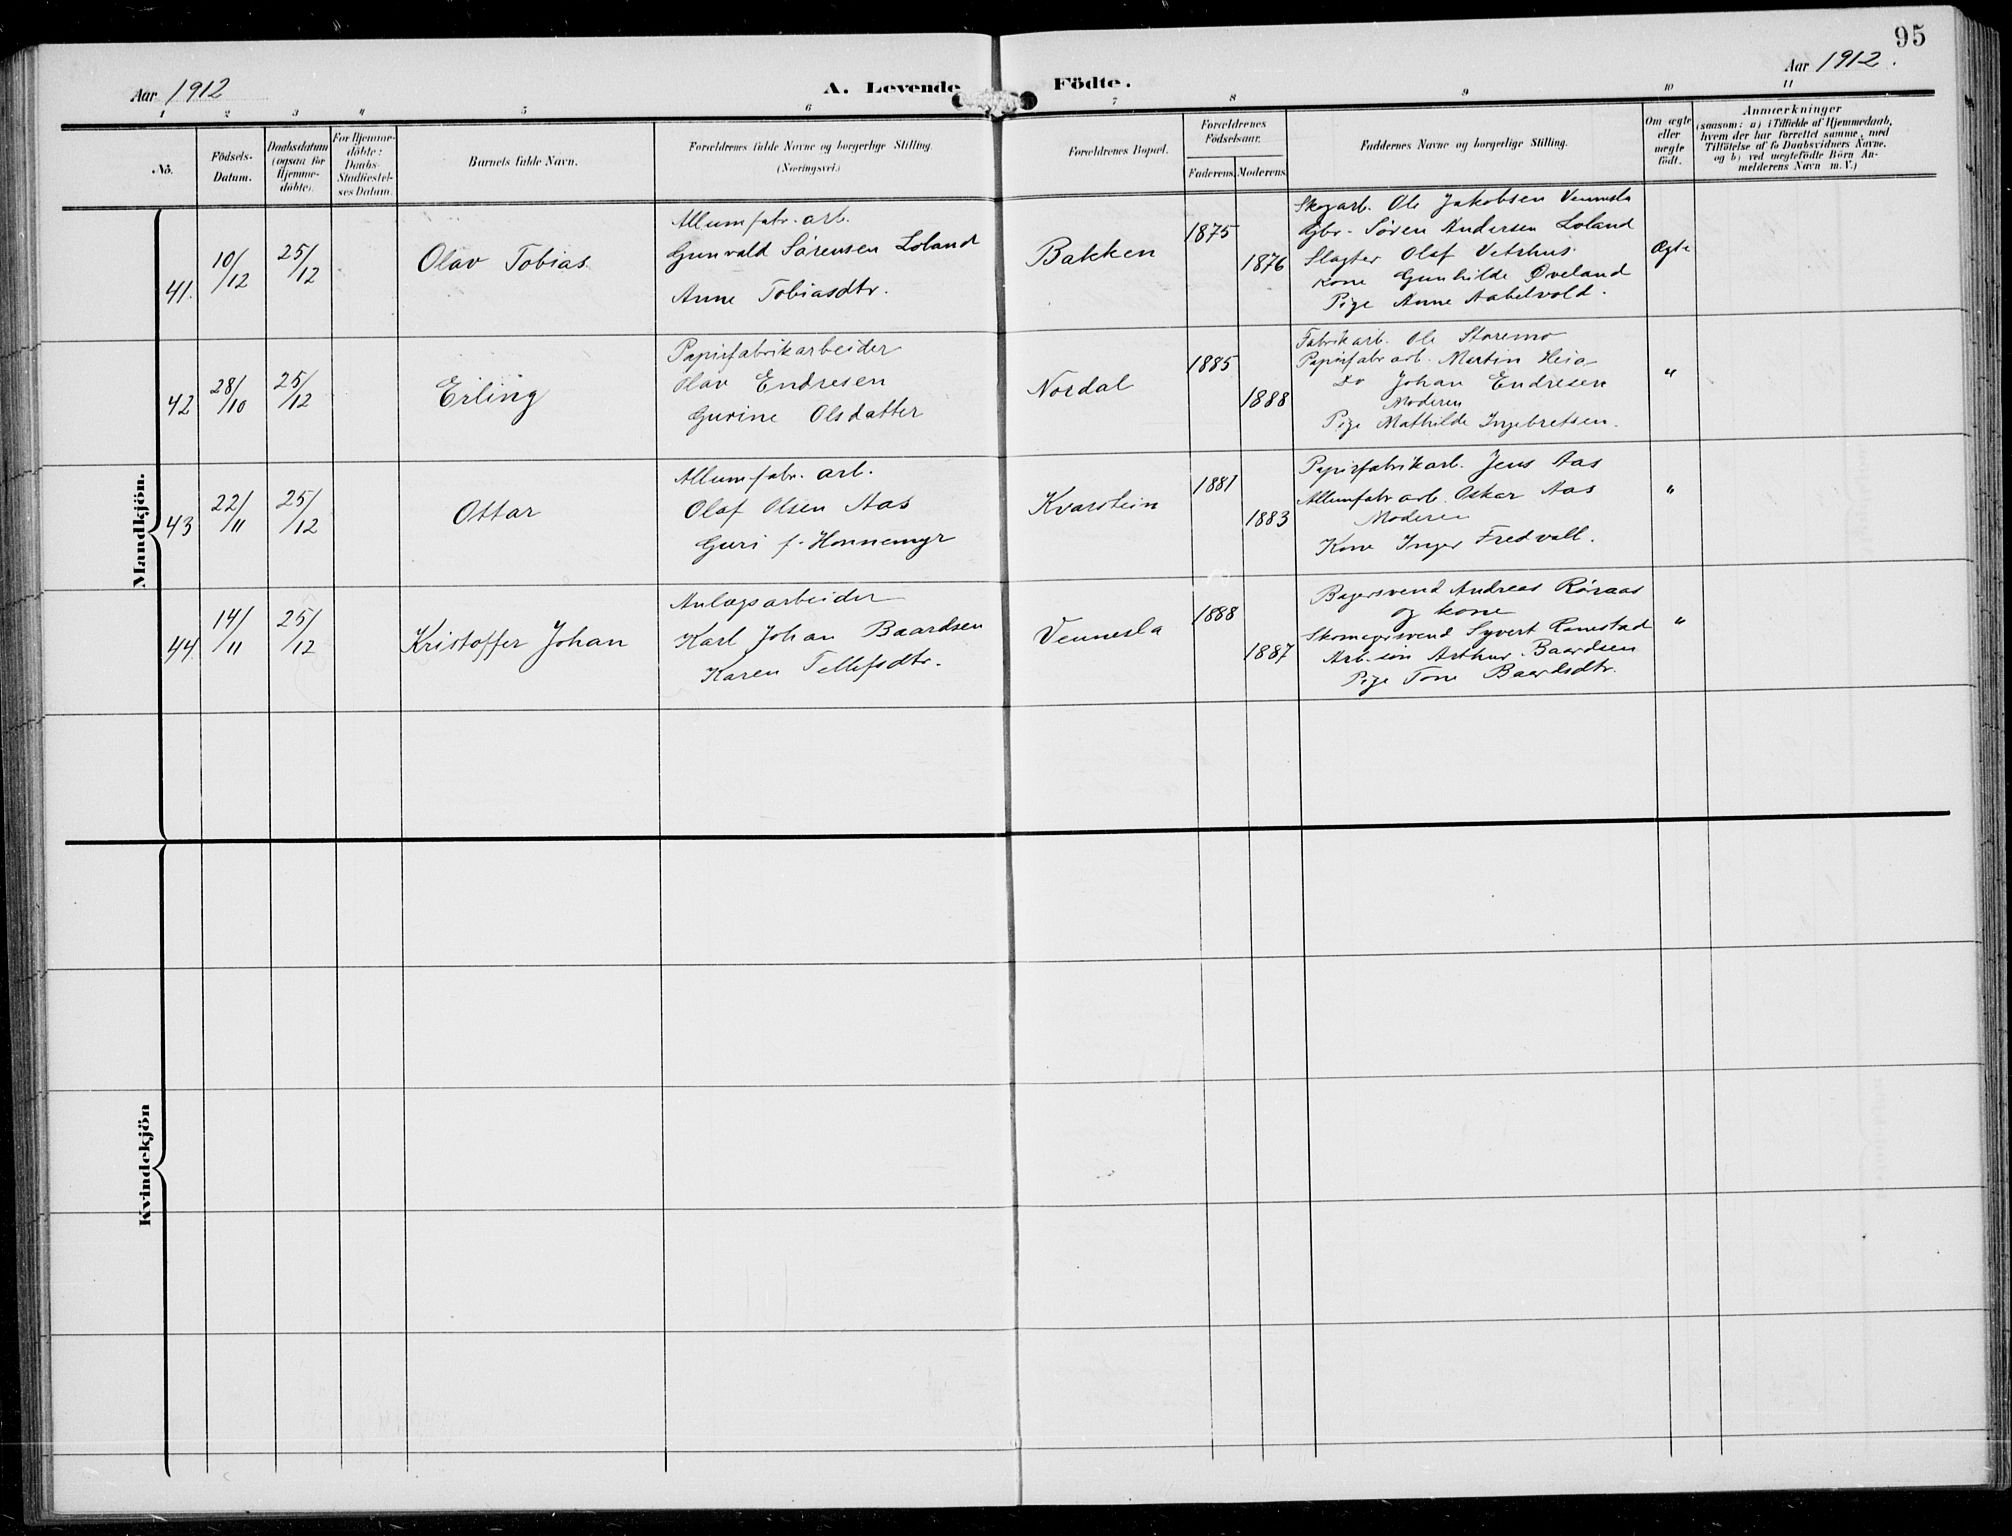 95
Aar 1912
A. Levende Födte.
Aar 1912.
1 2 3 4 5 6 7 8 9 10 11
No.
Födsels-Datum.
Daabsdatum (ogsaa for Hjemme-döbte).
For Hjemme-döbte: Daabs-Stadfæstel-ses Datum.
Barnets fulde Navn.
Forældrenes fulde Navne og borgerlige Stilling.
(Næringsvei.)
Forældrenes Bopæl.
Forældrenes Födselsaar.
Faderens. Moderens.
Faddernes Navne og borgerlige Stilling.
Om ægte eller uægte födt.
Anmærkninger
(saasom: a) i Tilfælde af Hjemmedaab,
hvem der har forrettet samme, med
Tilföielse af to Daabsvidners Navne,
og b) ved uægtefödte Börn An-
melderens Navn m. V.)
Mandkjön.
41. 10/12 25/12 Olav Tobias
Allumfabr. arb.
Gunvald Sørensen Loland
Anne Tobiasdtr.
Bakken 1875 1876
Skogarb. Ole Jakobsen Vennesla
Gbr. Søren Andersen Loland
Slagter Olaf Vetrhus
Kone Gunhilde Øveland
Pige Anne Aabelvold.
Ægte
42 28/10 25/12 Erling
Papirfabrikarbeider
Olav Endresen
Gurine Olsdatter
Nordal 1885 1888
Fabrikarb. Ole Storemo
Papirfabr arb. Martin Heia
Do Johan Endresen
Moderen
Pige Mathilde Ingebretsen.
"
43 22/11 25/12 Ottar
Allumfabr. arb.
Olaf Olsen Aas
Guri f. Honnemyr
Kvarstein 1881 1883
Papirfabrikarb. Jens Aas
Allumfabr arb. Oskar Aas
Moderen
Kone Inger Fredvall.
"
44. 14/11 25/12 Kristoffer Johan
Anlægsarbeider
Karl Johan Baardsen
Karen Tellefsdtr.
Vennesla 1888 1887
Bagersvend Andreas Røraas
og kone
Skomagersvend Syvert Ramstad
Arb. søn Arthur Baardsen
Pige Tone Baardsdtr.
"
Kvindekjön